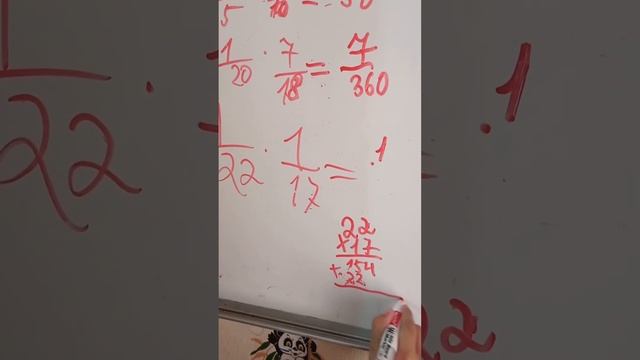 1/20 · 7/18 = 7/360
1/22 · 1/17 = 1
22
×17
154
+22